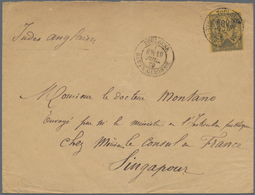 Indes anglaises
Monsieur le docteur Montano
envoyé par m. le ministre de l'Instruction publique
Chez Monsieur le Consul de France
Singapour